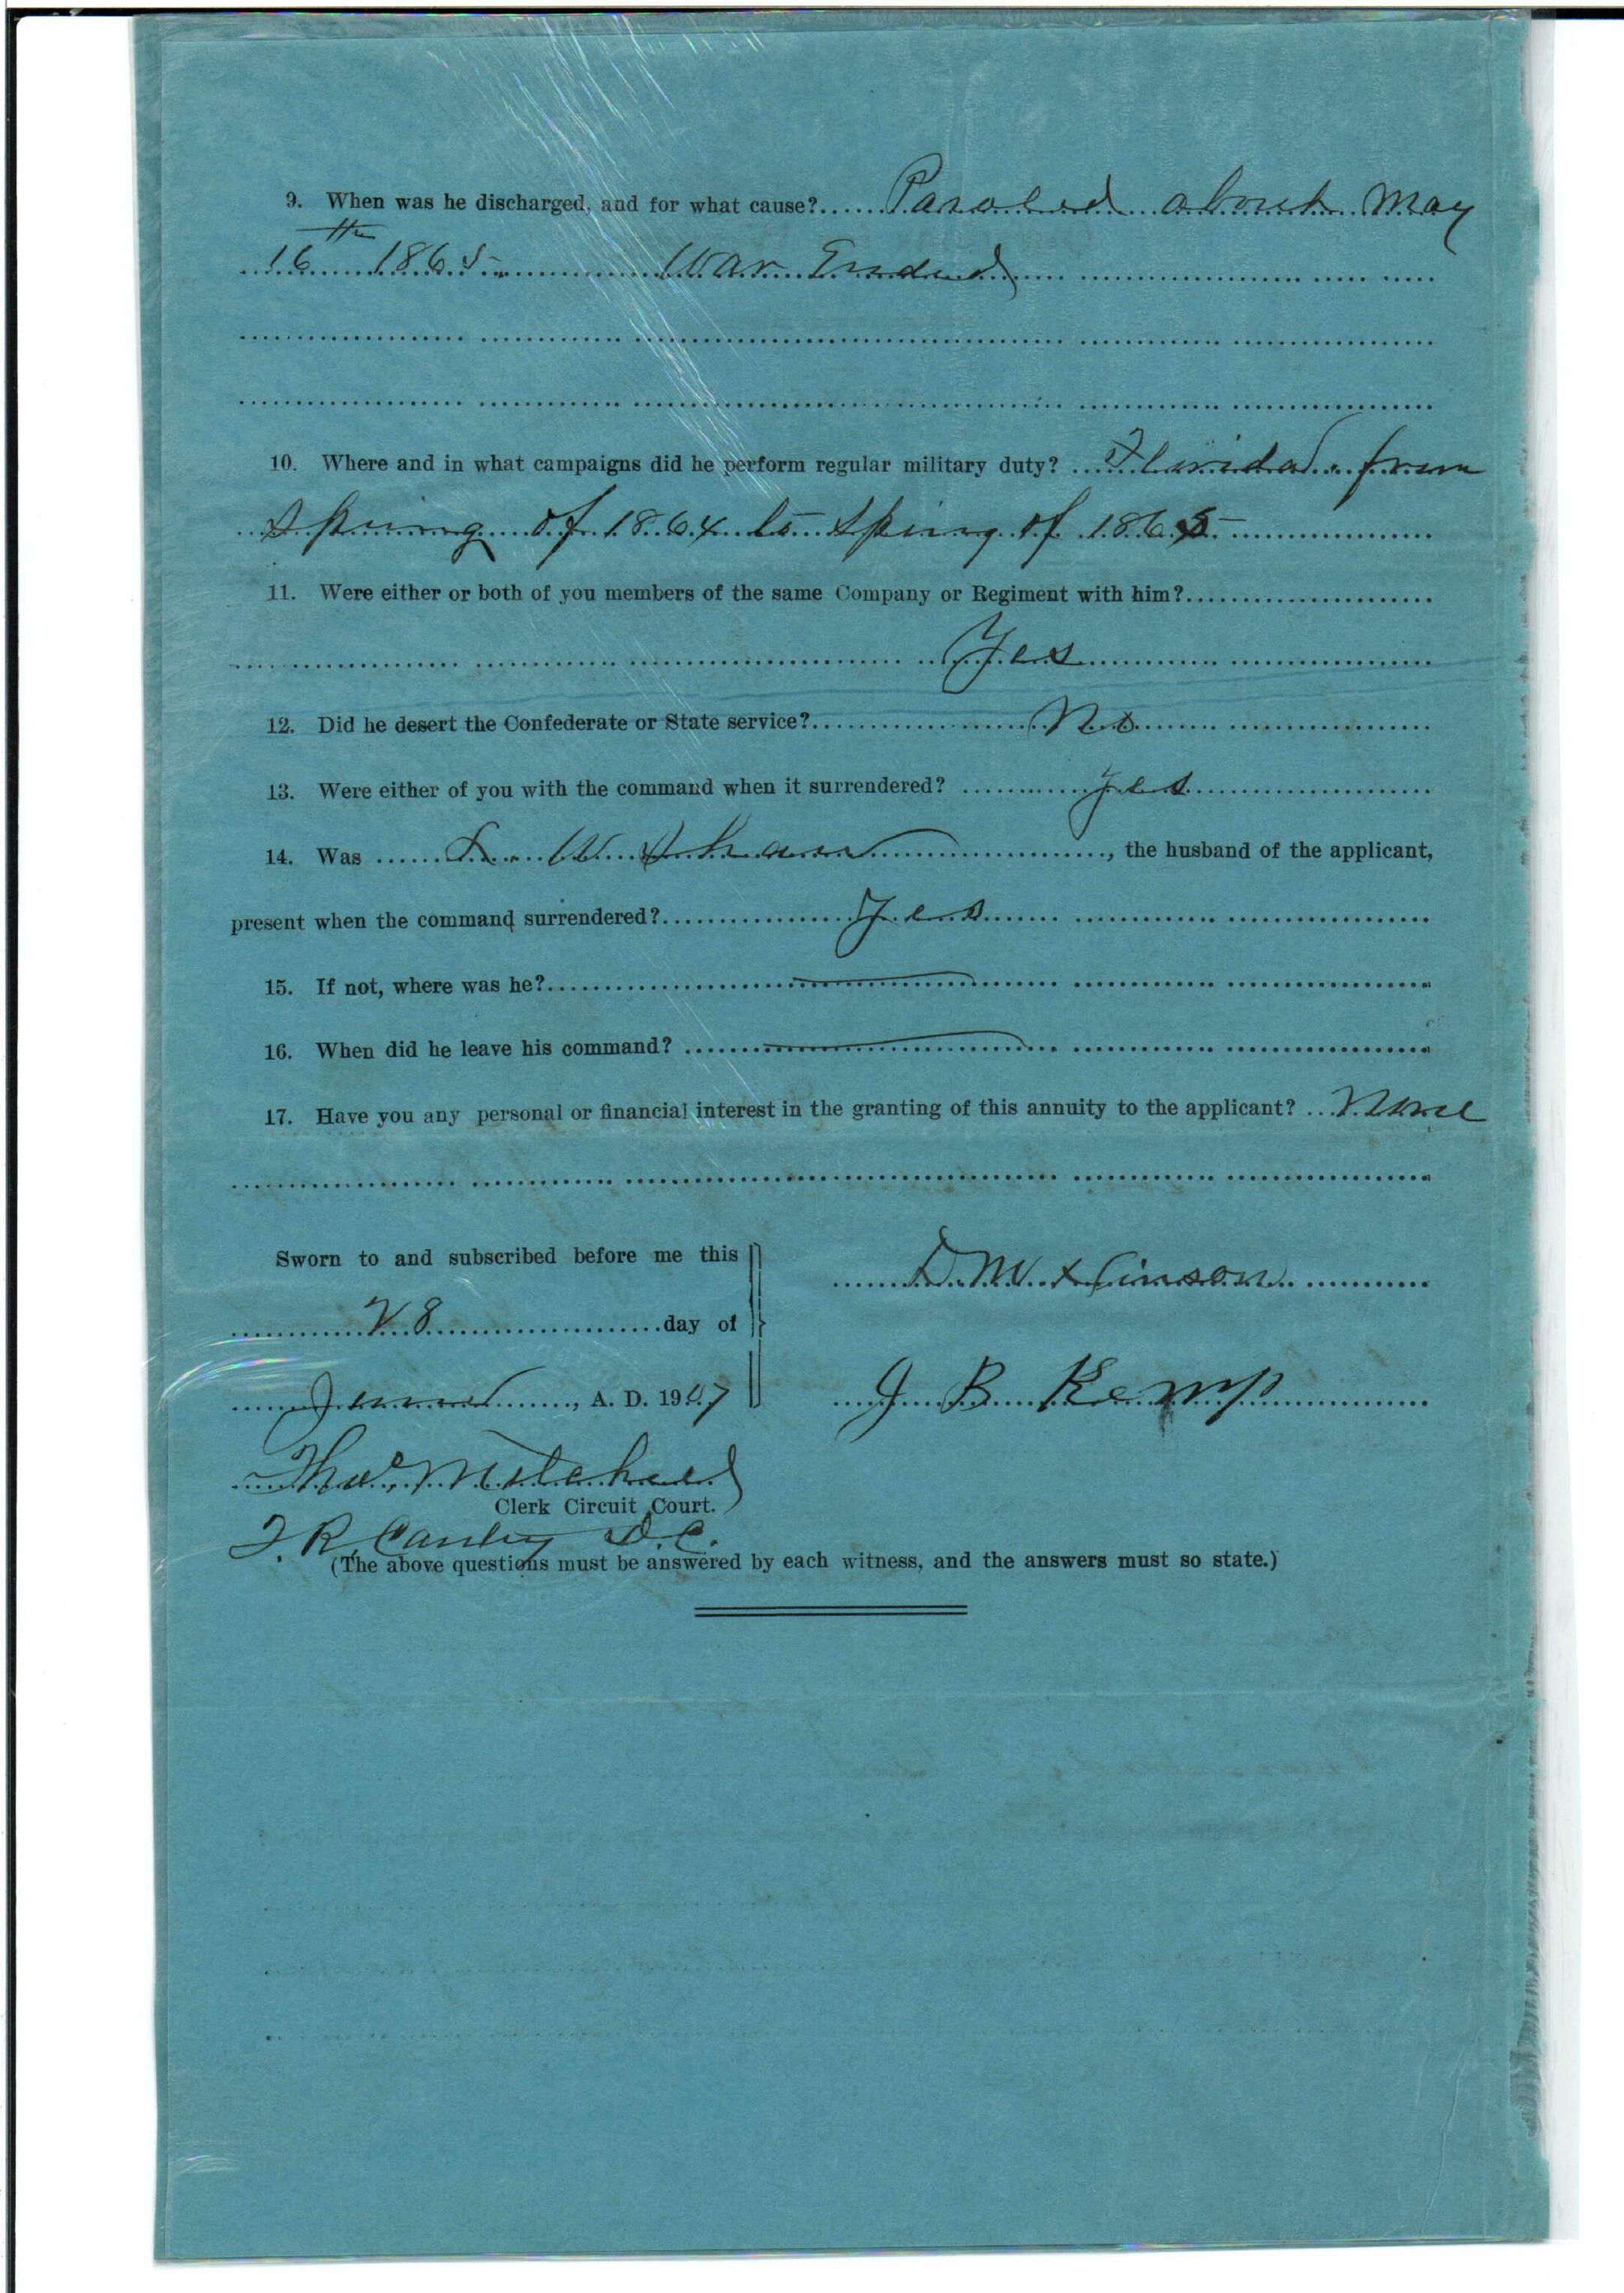 9. When was he discharged, and for what cause? Paroled about May
16th 1865 War Ended
10. Where and in what campaigns did he perform regular military duty? Florida from
Spring of 1864 to Spring of 1865
11. Were either or both of you members of the same Company or Regiment with him?
Yes
12. Did he desert the Confederate or State service? No
13. Were either of you with the command when it surrendered? Yes
14. Was W Shaw, the husband of the applicant,
present when the command surrendered? Yes
15. If not, where was he?
16. When did he leave his command?
17. Have you any personal or financial interest in the granting of this annuity to the applicant? None
Sworn to and subscribed before me this
D. M.
28 day of
June, A. D. 1907
J B Kemp
Clerk Circuit Court.
D.C.
(The above questions must be answered by each witness, and the answers must so state.)